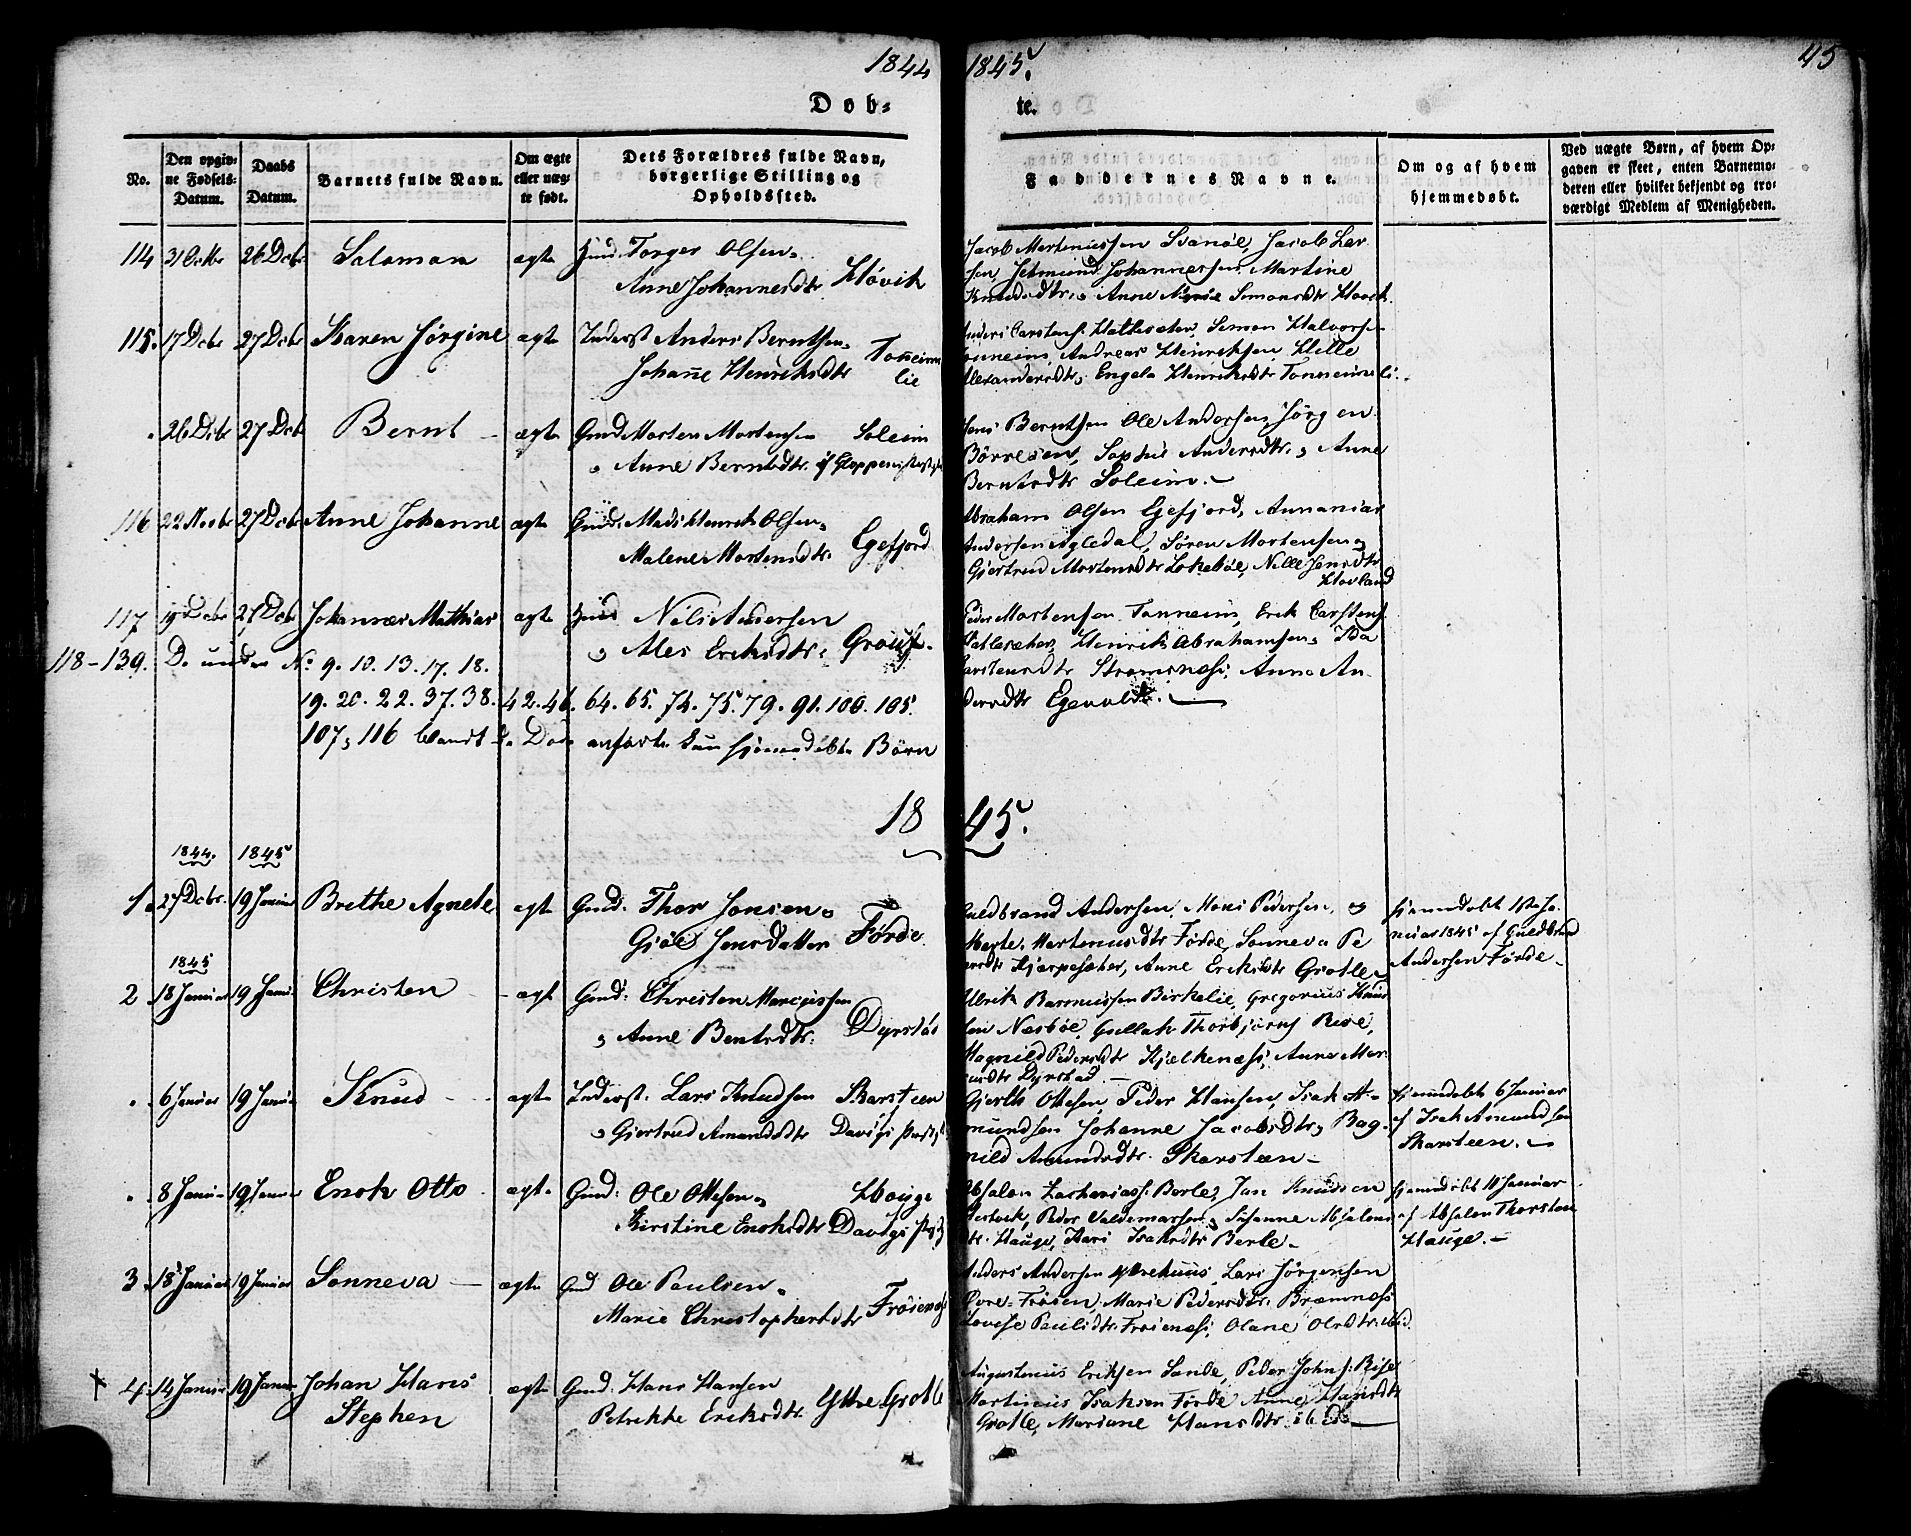 1844
1845.
45
Døb-
te.
No.
Den opgiv-
ne Fødsels-
Datum.
Daabs
Datum.
Barnets fulde Navn.
Om ægte
eller uæg-
te født.
Dets Forældres fulde Navn,
borgerlige Stilling og
Opholdssted.
Faddernes Navne.
Om og af hvem
hjemmedøbt.
Ved uægte Børn, af hvem Op-
gaven er skeet, enten Barnemo-
deren eller hvilket bekjendt og tro-
værdigt Medlem af Menigheden.
114 31 Octbr 26 Dcbr Salamon ægte Torger Olsen
Anne Johannesdtr Høvik
Jacob Martinussen Svanøe, Jacob Lar-
sen, Johannessen, Martine
Knudsdtr, Anne Simonsdtr
115. 17 Dcbr 27 Dcbr Karen Jørgine ægte Inderst Anders Berntsen
Johanne Henriksdtr Tonneim
lie
Anders Carstens. Hatlesæter, Simon Halvorse-
Tonneim, Andreas Henriksen, Hille
Alexandersdtr, Engela Henriksdtr Tonneimli.
26 Dcbr 27 Dcbr Bernt ægte Gmd Morten Mortensen Soleim
Anne Berntsdtr. af Gloppens
Jens Berntsen Ole Andersen, Jørgen
Børresen, Sophie Andersdtr. Anne
Berntsdtr Soleim.
116 22 Novbr 27 Dcbr Anne Johanne ægte Gmd. Mads Henrik Olsen
Malene Mortensdtr. Egefjord
Abraham Olsen Egefjord, Annanias
Andersen Agledal, Søren Mortensen
Gjertrud Mortensdtr Lokebøe, Nille Jensdtr
Hovland
117 19 Dcbr 27 Dcbr Johannes Mathias ægte Niels Andersen
Ales Eriksdtr.
Peder Mortensen Tonneim, Erik Carstens
Hatlesæter, Henrik Abrahamsen,
Carstensdtr Stromsnæs, Anne An-
dersdtr
118-139. Do under No 9. 10. 13. 17. 18.
19. 20. 22. 37. 38. 42. 46. 64. 65. 74. 75. 79. 91. 100. 105.
107, 116 blandt de Døde anførte kun hjemmedøbte Børn
1845.
1844. 1845
1. 27 Dcbr. 19 Januar Brethe Agnete ægte Gmd. Thor Jonsen
Gjøe Jensdatter Førde
Guldbrand Andersen, Mons Pedersen, og
Marte Martinusdtr Førde, Sonneva Pe
dersdtr Hjarpesæter, Anne Eriksdtr Grotle
hjemmedøbt 1ste Ja-
nuar 1845 af Guldbrand
Andersen Førde
1845
2 18 Januar 19 Janu. Christen ægte Gmd: Christen Marcussen
Anne Bentsdtr. Dyrstad
Ulrik Rasmussen Birkelie, Gregorius Knud
sen Næsbøe, Gullak Thorbjørns Rise,
Magnild Pedersdtr Hjelkenæs, Anne Mar-
cusdtr Dyrstad
6 Januar 19 Janu. Knud ægte Inderst. Lars Knudsen Skarsteen
Gjertrud Amundsdtr Davigs
Gjerth Ottesen, Peder Hansen, Isak A-
mundsen Johanne Jacobsdtr, Rag-
nild Amundsdtr. Skarsteen
hjemmedøbt 6 Januar
af Isak Amundsen
Skarsteen.
8 Janu. 19 Janu. Enok Otto ægte Gmd: Ole Ottesen
Kirstine Enoksdtr Davigs
Absalon Zachariass. Berle, Jan Knudsen
Peder Valdemarsen, Susanne Absalons
dtr. Hauge, Kari Isaksdtr Berle
hjemmedøbt 10 Januar
af Absalon Thorsten
Hauge.
3. 15 Januar 19 Januar Sonneva ægte Gmd Ole Paulsen
Marie Christophersdtr Frøienæs
Anders Andersen Lars Jørgensen
Øvre-Frøien, Marie Pedersdtr. Bræmnæs
Lovise Paulsdtr. Frøienæs, Olane Olsdtr. ibid.
4. 14 Januar 19 Januar Johan Hans ægte Gmd. Hans Hansen
Stephen Petrikke Eriksdtr. Yttre Grotle
Augustinus Eriksen Sande, Peder Johns. Rise
Martinus Isaksen Førde Anne Hansdtr
Grotle, Mariane Hansdtr. ibid